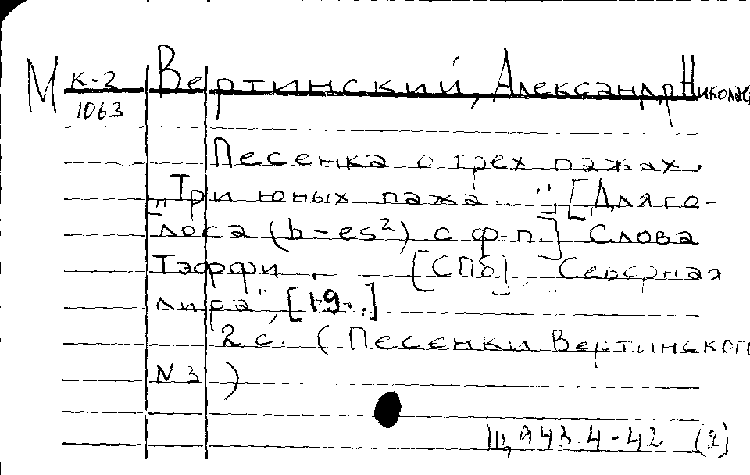 М К-2 Вертинский, Александр Никола
1063
Песенка о трех пажах.
"Три юных пажа..." [Для го-
лоса (b-es²) с ф-п.] Слова
Тэффи. [СПб], "Северная
лира", [19..]
2 с. (Песенки Вертинского
N 3)
Щ 943.4-42 (2)